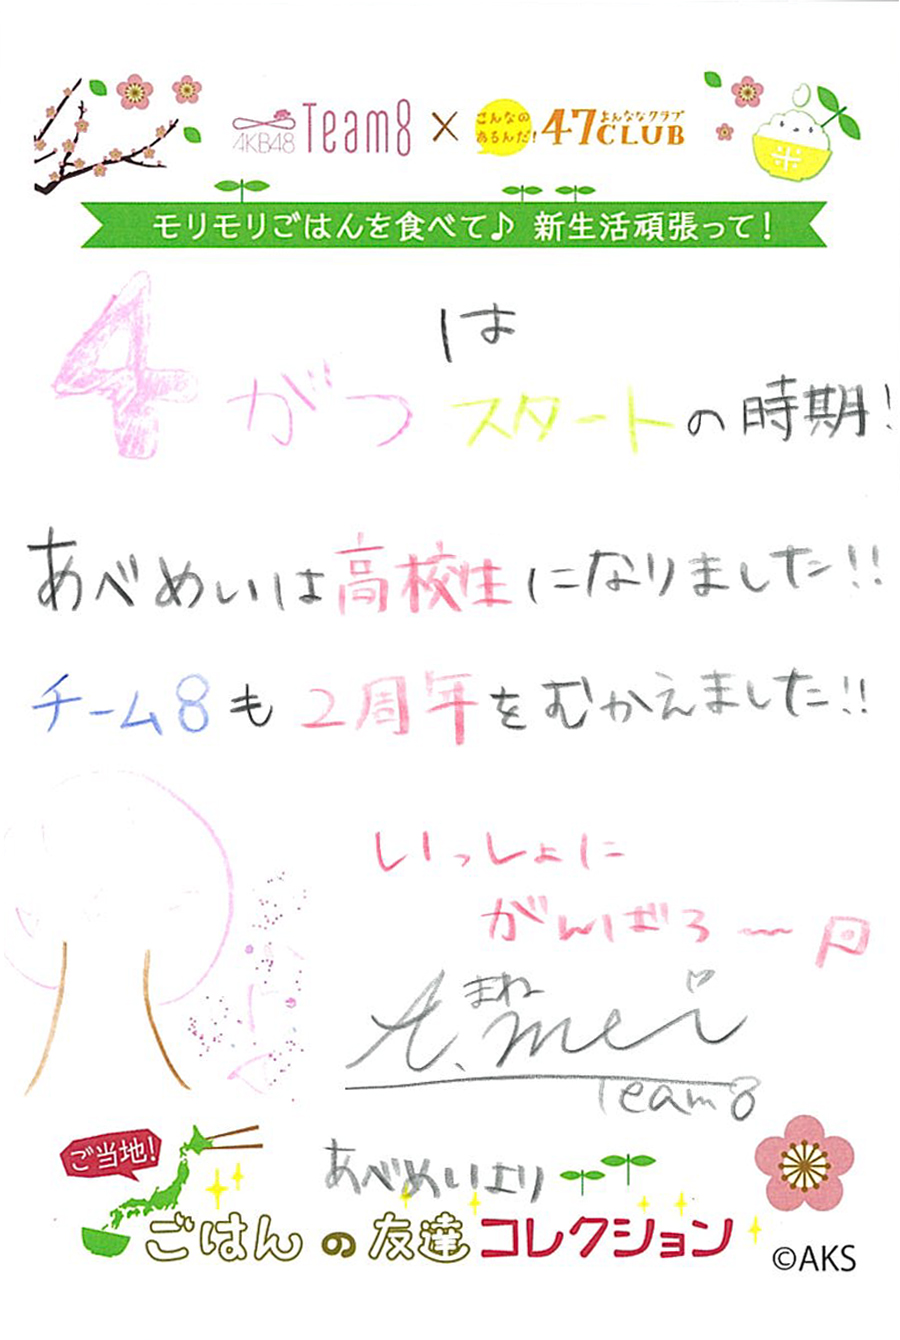 AKB48 Team8 × こんなの あるんだ! 47CLUB よんななクラブ
米
モリモリごはんを食べて♪ 新生活頑張って!
4がつは
スタートの時期!
あべめいは高校生になりました!!
チーム8も2周年をむかえました!!
いっしょに
がんばろ〜
まね
A.mei
Team8
ご当地!
あべめいより
ごはんの友達コレクション
©AKS